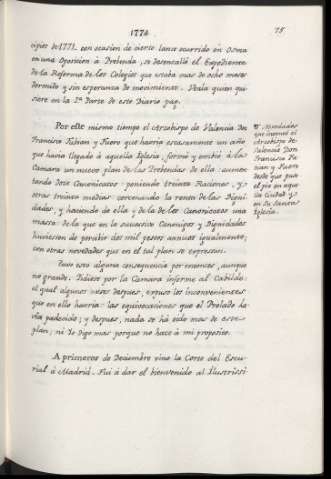 1774
75
cipios de 1771. con ocasion de cierto lance ocurrido en Osma
en una Oposicion à Prebenda, se desencalló el Expediente
de la Reforma de los Colegios que estaba mas de ocho meses
dormido y sin esperanza de movimiento. Veala quien qui-
siere en la 2ª Parte de este Diario pag.
Por este mismo tiempo el Arzobispo de Valencia Don
Francisco Fabian y Fuero que havria escasamente un año
que havia llegado à aquella Iglesia, formó y embió à la
Camara un nuevo plan de las Prebendas de ella aumen-
tando Doce Canonicatos poniendo treinta Raciones, y
otras treinta medias: cercenando la renta de las Digni-
dades, y haciendo de ella y de la de los Canonicatos una
massa de la que en lo sucesivo Canonigos y Dignidades
huviessen de percibir dos mil pesos annuos igualmente,
con otras novedades que en el tal plan se expressan.
Tuvo esto alguna consequencia por entonces, aunque
no grande. Pidiose por la Camara informe al Cabildo:
el qual algunos meses despues, expuso los inconvenientes
que en ello havria: las equivocaciones que el Prelado ha-
via padecido; y despues, nada se há oido mas de este
plan; ni Yo digo mas porque no hace à mi proposito.
A primeros de Deciembre vino la Corte del Escu-
rial à Madrid. Fui à dar el bienvenido al Ilustrissi
Novedades
que intentó el
Arzobispo de
Valencia Don
Francisco Fa-
vian y Fuero
desde que puso
el pie en aque-
lla Ciudad y
en su Santa
Iglesia.